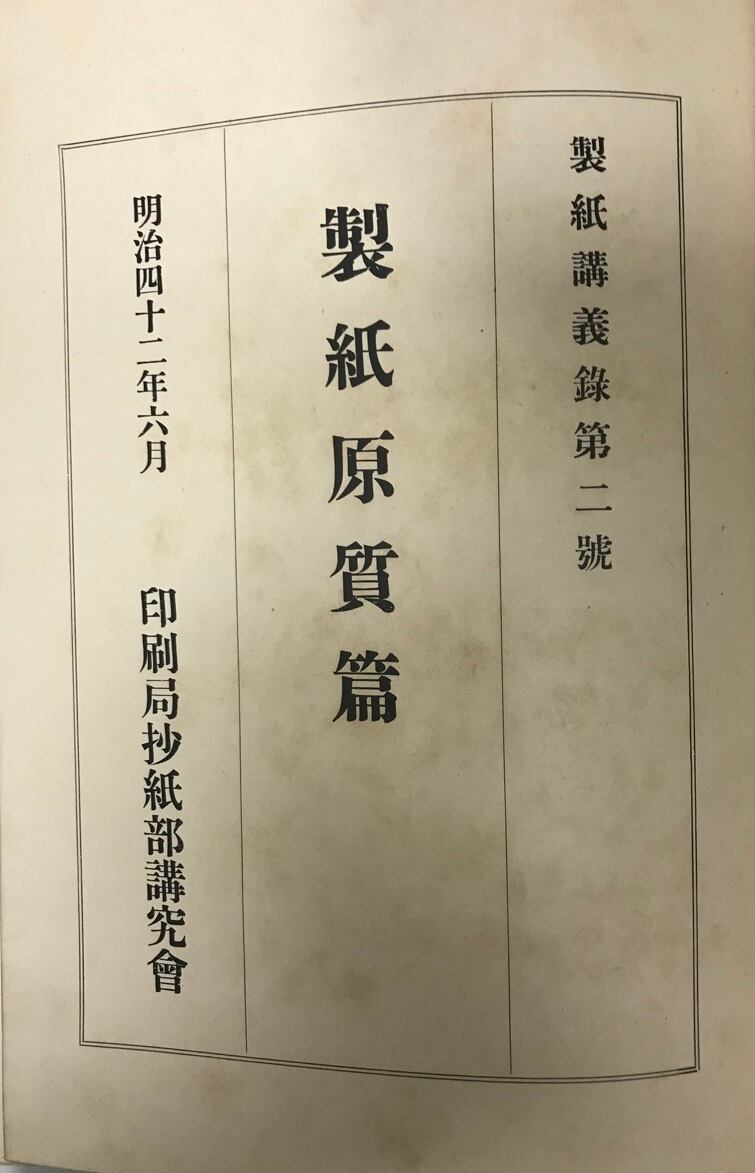 製紙講義錄第二號
製紙原質篇
明治四十二年六月
印刷局抄紙部講究會